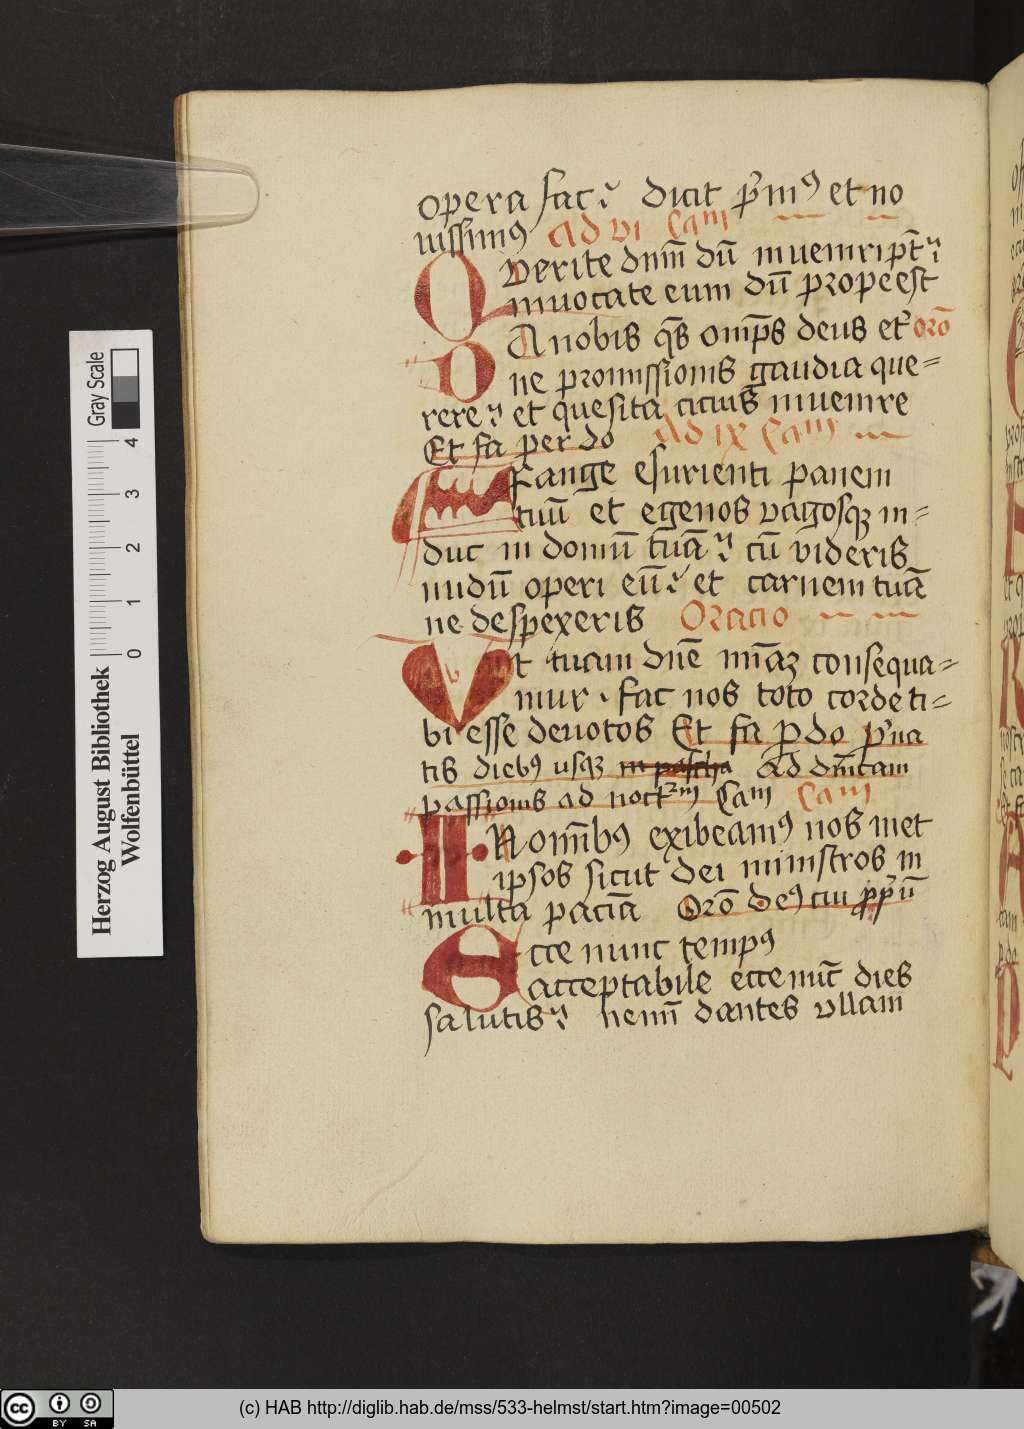 opera fac dicit p̄mꝰ et no
uissimꝰ Ad vi Cam
Querite dn̄m dū inueniri pt̄
inuocate eum dū prope est
DA nobis qs̄ omps̄ deus et orō
ne promissionis gaudia que=
rere et quesita citius inuenire
Et fa per do Ad ix Cam
Frange esurienti panem
tuū et egenos vagosqꝫ in=
duc in domū tuā cū videris
nudū operi eū et carnem tuā
ne despexeris Oracio
Vt tuam dn̄e mīaꝫ consequa=
mur fac nos toto corde ti=
bi esse deuotos Et fa p do
tis diebꝰ usqꝫ in pascha Ad dn̄icam
passionis ad noct Cam Cam
IN om̄ibꝰ exibeamꝰ nos met
ipsos sicut dei ministros in
multa paciā Orō deꝰ cui ꝓpū
Ecce nunc tempꝰ
acceptabile ecce nūc dies
salutis nemī dantes vllam
Herzog August Bibliothek
Wolfenbüttel
0 1 2 3 4
Gray Scale
cc BY SA
(c) HAB http://diglib.hab.de/mss/533-helmst/start.htm?image=00502